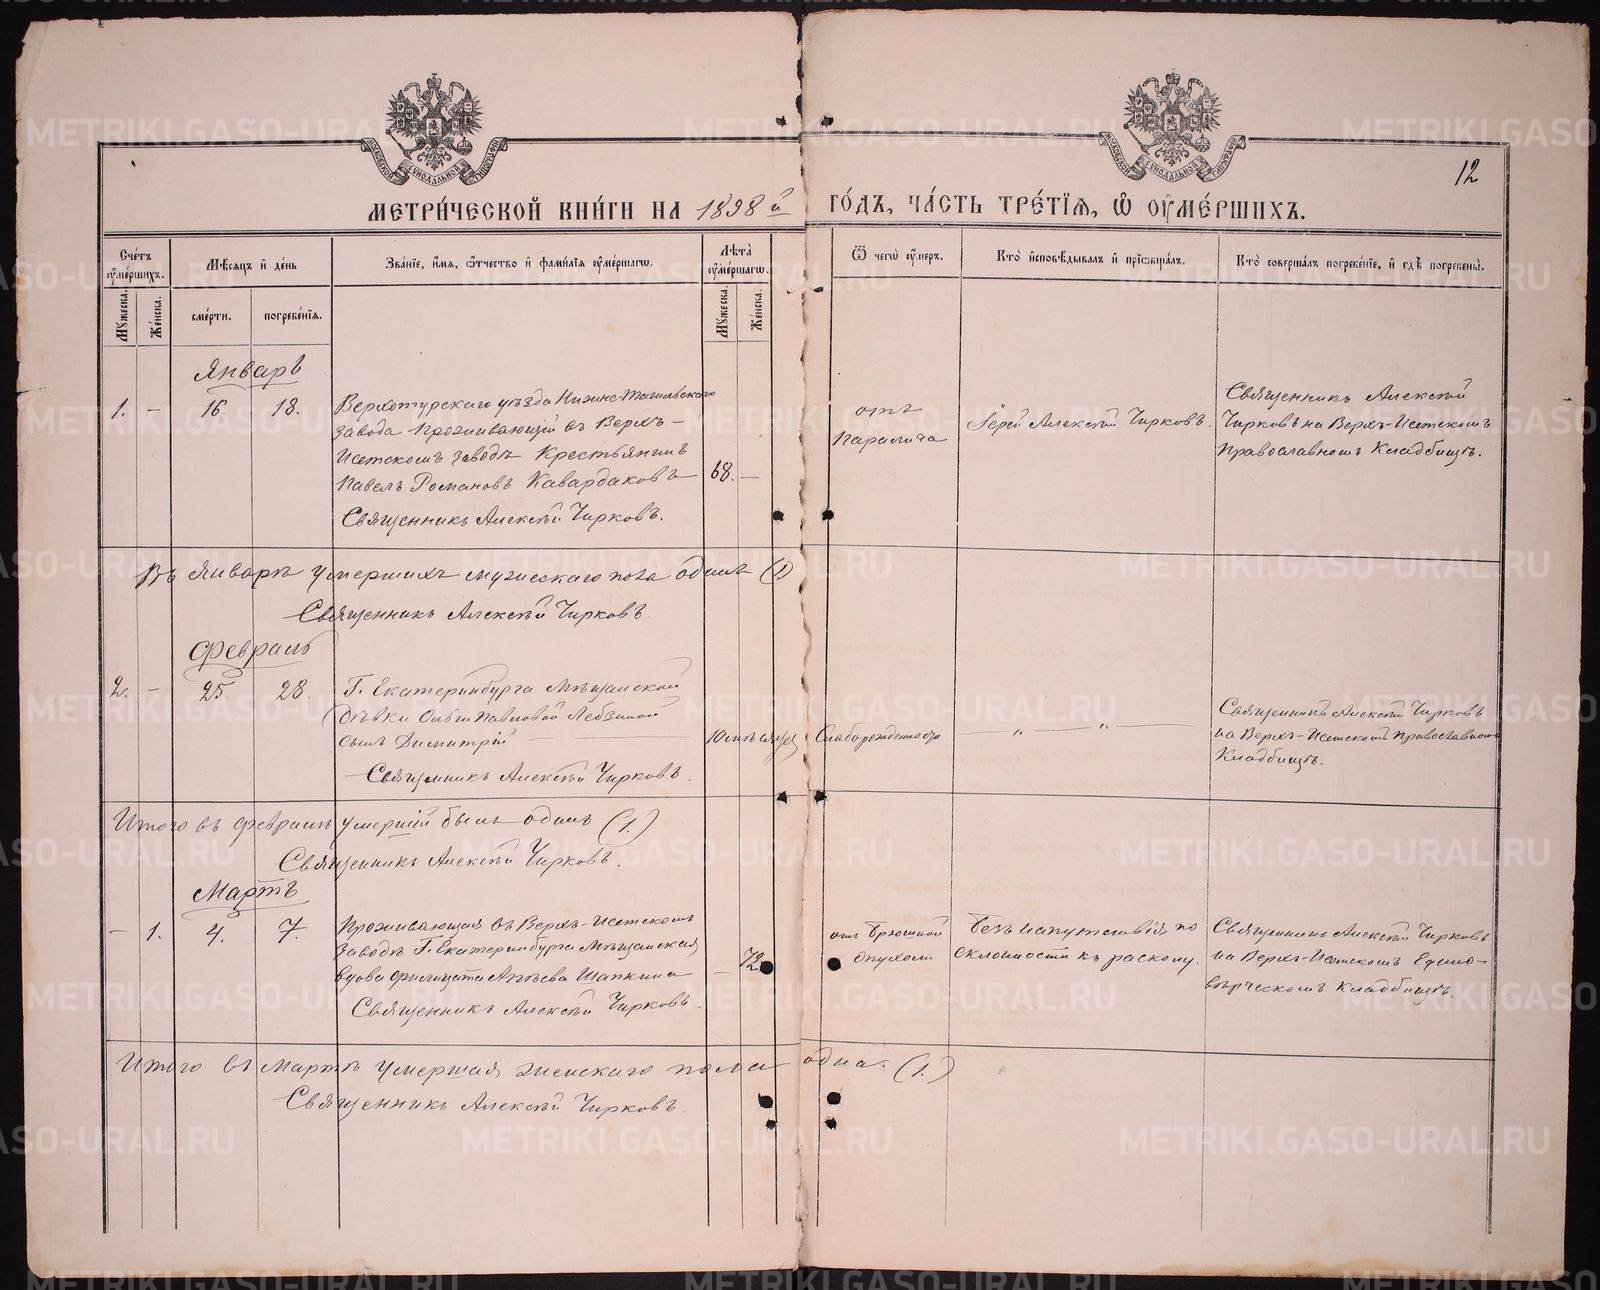 12
МЕТРИЧЕСКОЙ КНИГИ НА 1898й ГОДЪ, ЧАСТЬ ТРЕТІЯ, Ѿ ОУМЕРШИХЪ.
Счетъ оумершихъ.
Мѣсяцъ и день
Званіе, имя, ѿчество и фамилія оумершагѡ.
Лѣта оумершагѡ.
Ѿ чегѡ оумеръ.
Кто исповѣдывалъ и пріобщалъ.
Кто совершалъ погребеніе, и гдѣ погребены.
Мужеска.
Женска.
смерти.
погребенія.
Мужеска.
Женска.
Январь
1. — 16. 18.
Верхотурскаго уѣзда Нижне-Тагильскаго
завода проживающій въ Верхъ-
Исетскомъ заводѣ Крестьянинъ
Павелъ Романовъ Кавардаковъ
68. —
отъ
Паралича
Іерей Алексѣй Чирковъ.
Священникъ Алексѣй
Чирковъ на Верхъ-Исетскомъ
Православномъ Кладбищѣ.
Священникъ Алексѣй Чирковъ.
Въ Январѣ умершихъ мужескаго пола одинъ (1)
Священникъ Алексѣй Чирковъ.
Февраль
2. — 25. 28.
Г. Екатеринбурга Мѣщанской
дѣвки Ольги Павловой Лебзиной
сынъ Димитрій
10 мѣсяцей
Слаборожденности
— „ — „ —
Священникъ Алексѣй Чирковъ
на Верхъ-Исетскомъ Православномъ
Кладбищѣ.
Священникъ Алексѣй Чирковъ.
Итого въ Февралѣ умершій былъ одинъ (1.)
Священникъ Алексѣй Чирковъ.
Мартъ
— 1. 4. 7.
Проживающая въ Верхъ-Исетскомъ
заводѣ Г. Екатеринбурга Мѣщанская
вдова Филицата Шапкина
— 72
отъ брюшной
опухоли
безъ напутствія по
склонности къ расколу.
Священникъ Алексѣй Чирковъ
на Верхъ-Исетскомъ Едино-
вѣрческомъ кладбищѣ.
Священникъ Алексѣй Чирковъ.
Итого въ Мартѣ умершая женскаго пола одна. (1.)
Священникъ Алексѣй Чирковъ.
METRIKI.GASO-URAL.RU